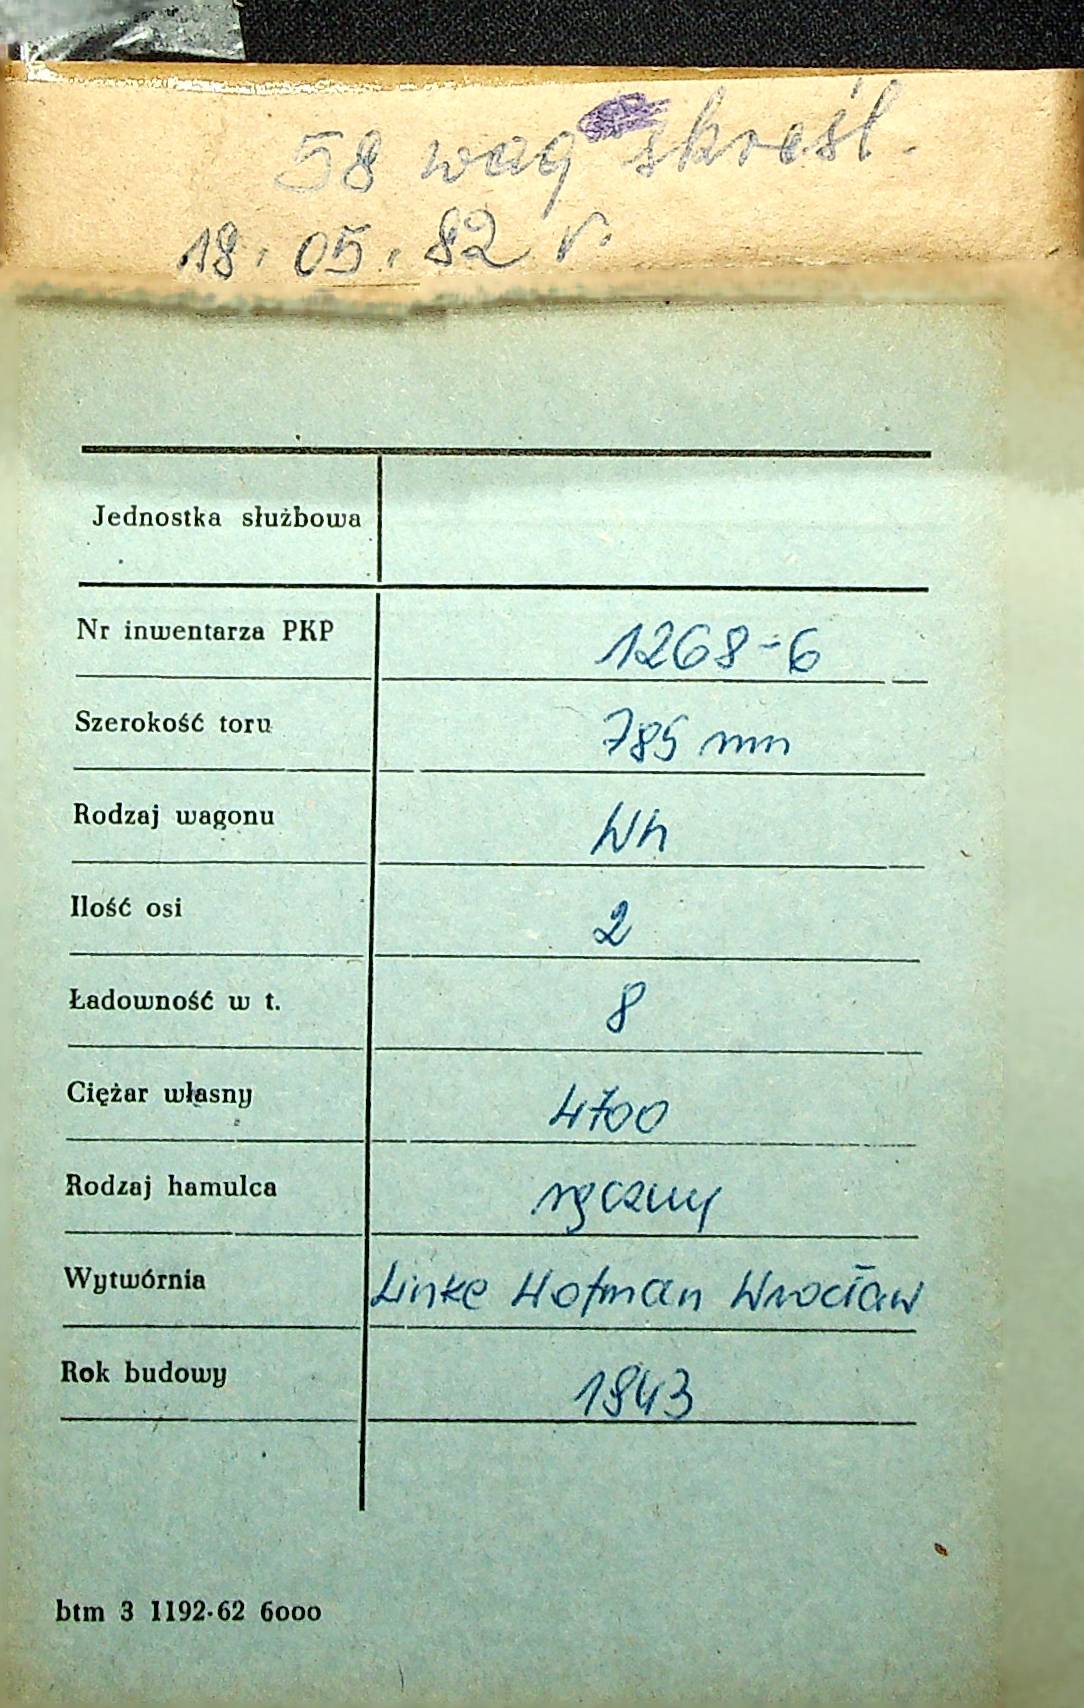 58 wag skreśl.
18.05.82 r.
Jednostka służbowa
Nr inwentarza PKP 1268-6
Szerokość toru 785 mm
Rodzaj wagonu Wh
Ilość osi 2
Ładowność w t. 8
Ciężar własny 4700
Rodzaj hamulca ręczny
Wytwórnia Linke Hofman Wrocław
Rok budowy 1943
btm 3 1192-62 6000